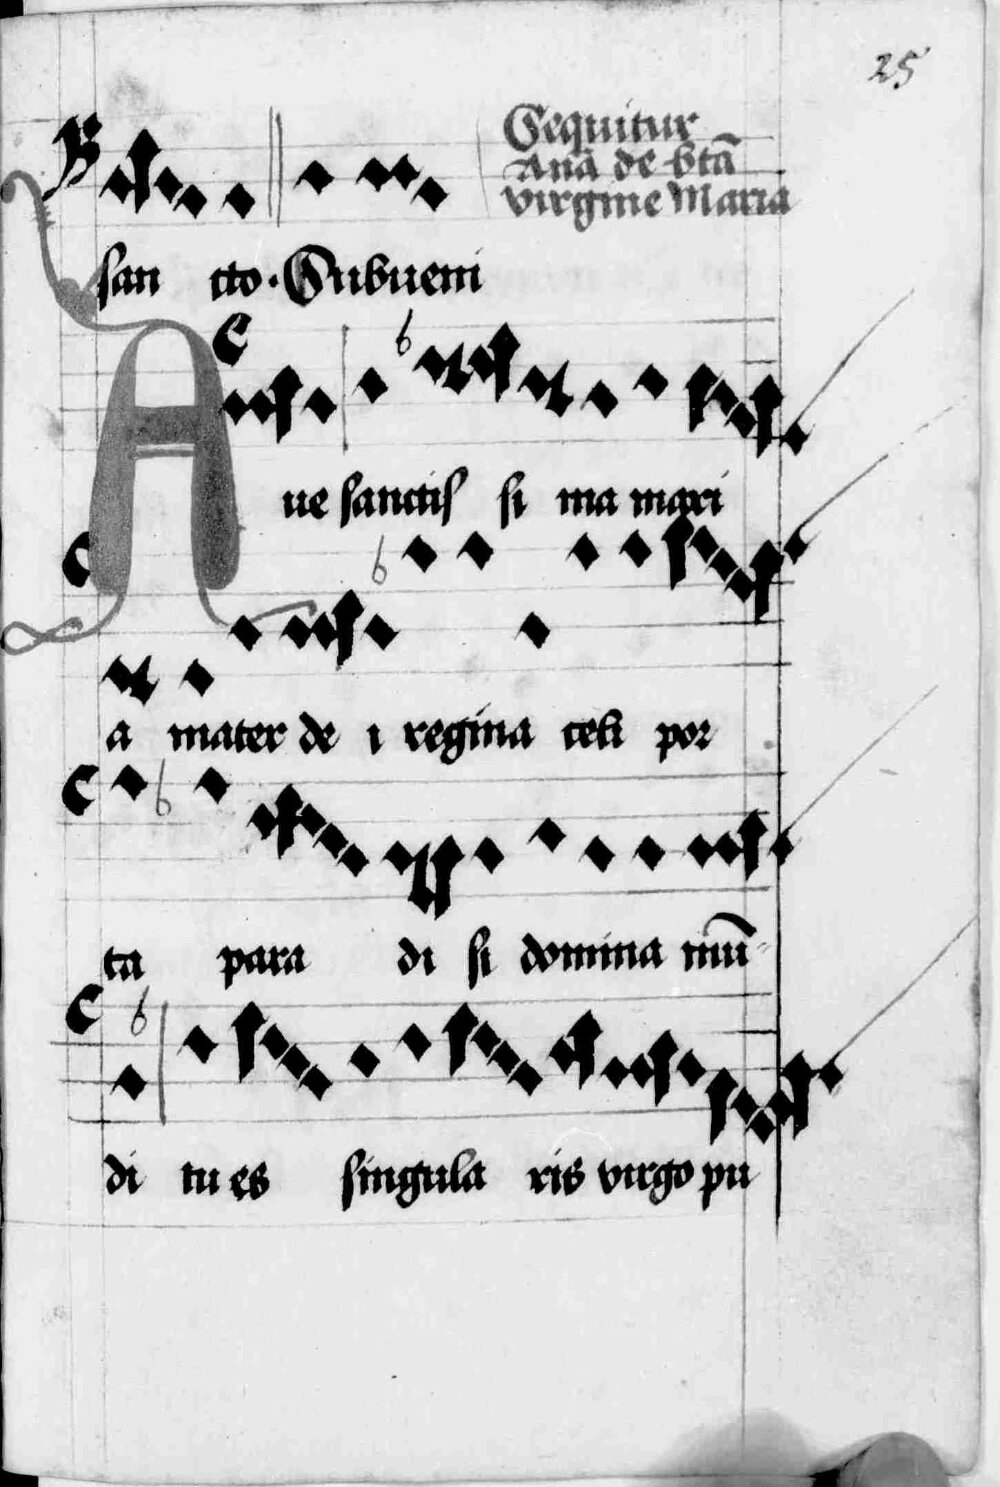 25
Sequitur
Anā de btā
virgine Maria
san cto. Subueni
Aue sanctis si ma mari
a mater de i regina celi por
ta para di si domina mū
di tu es singula ris virgo pu